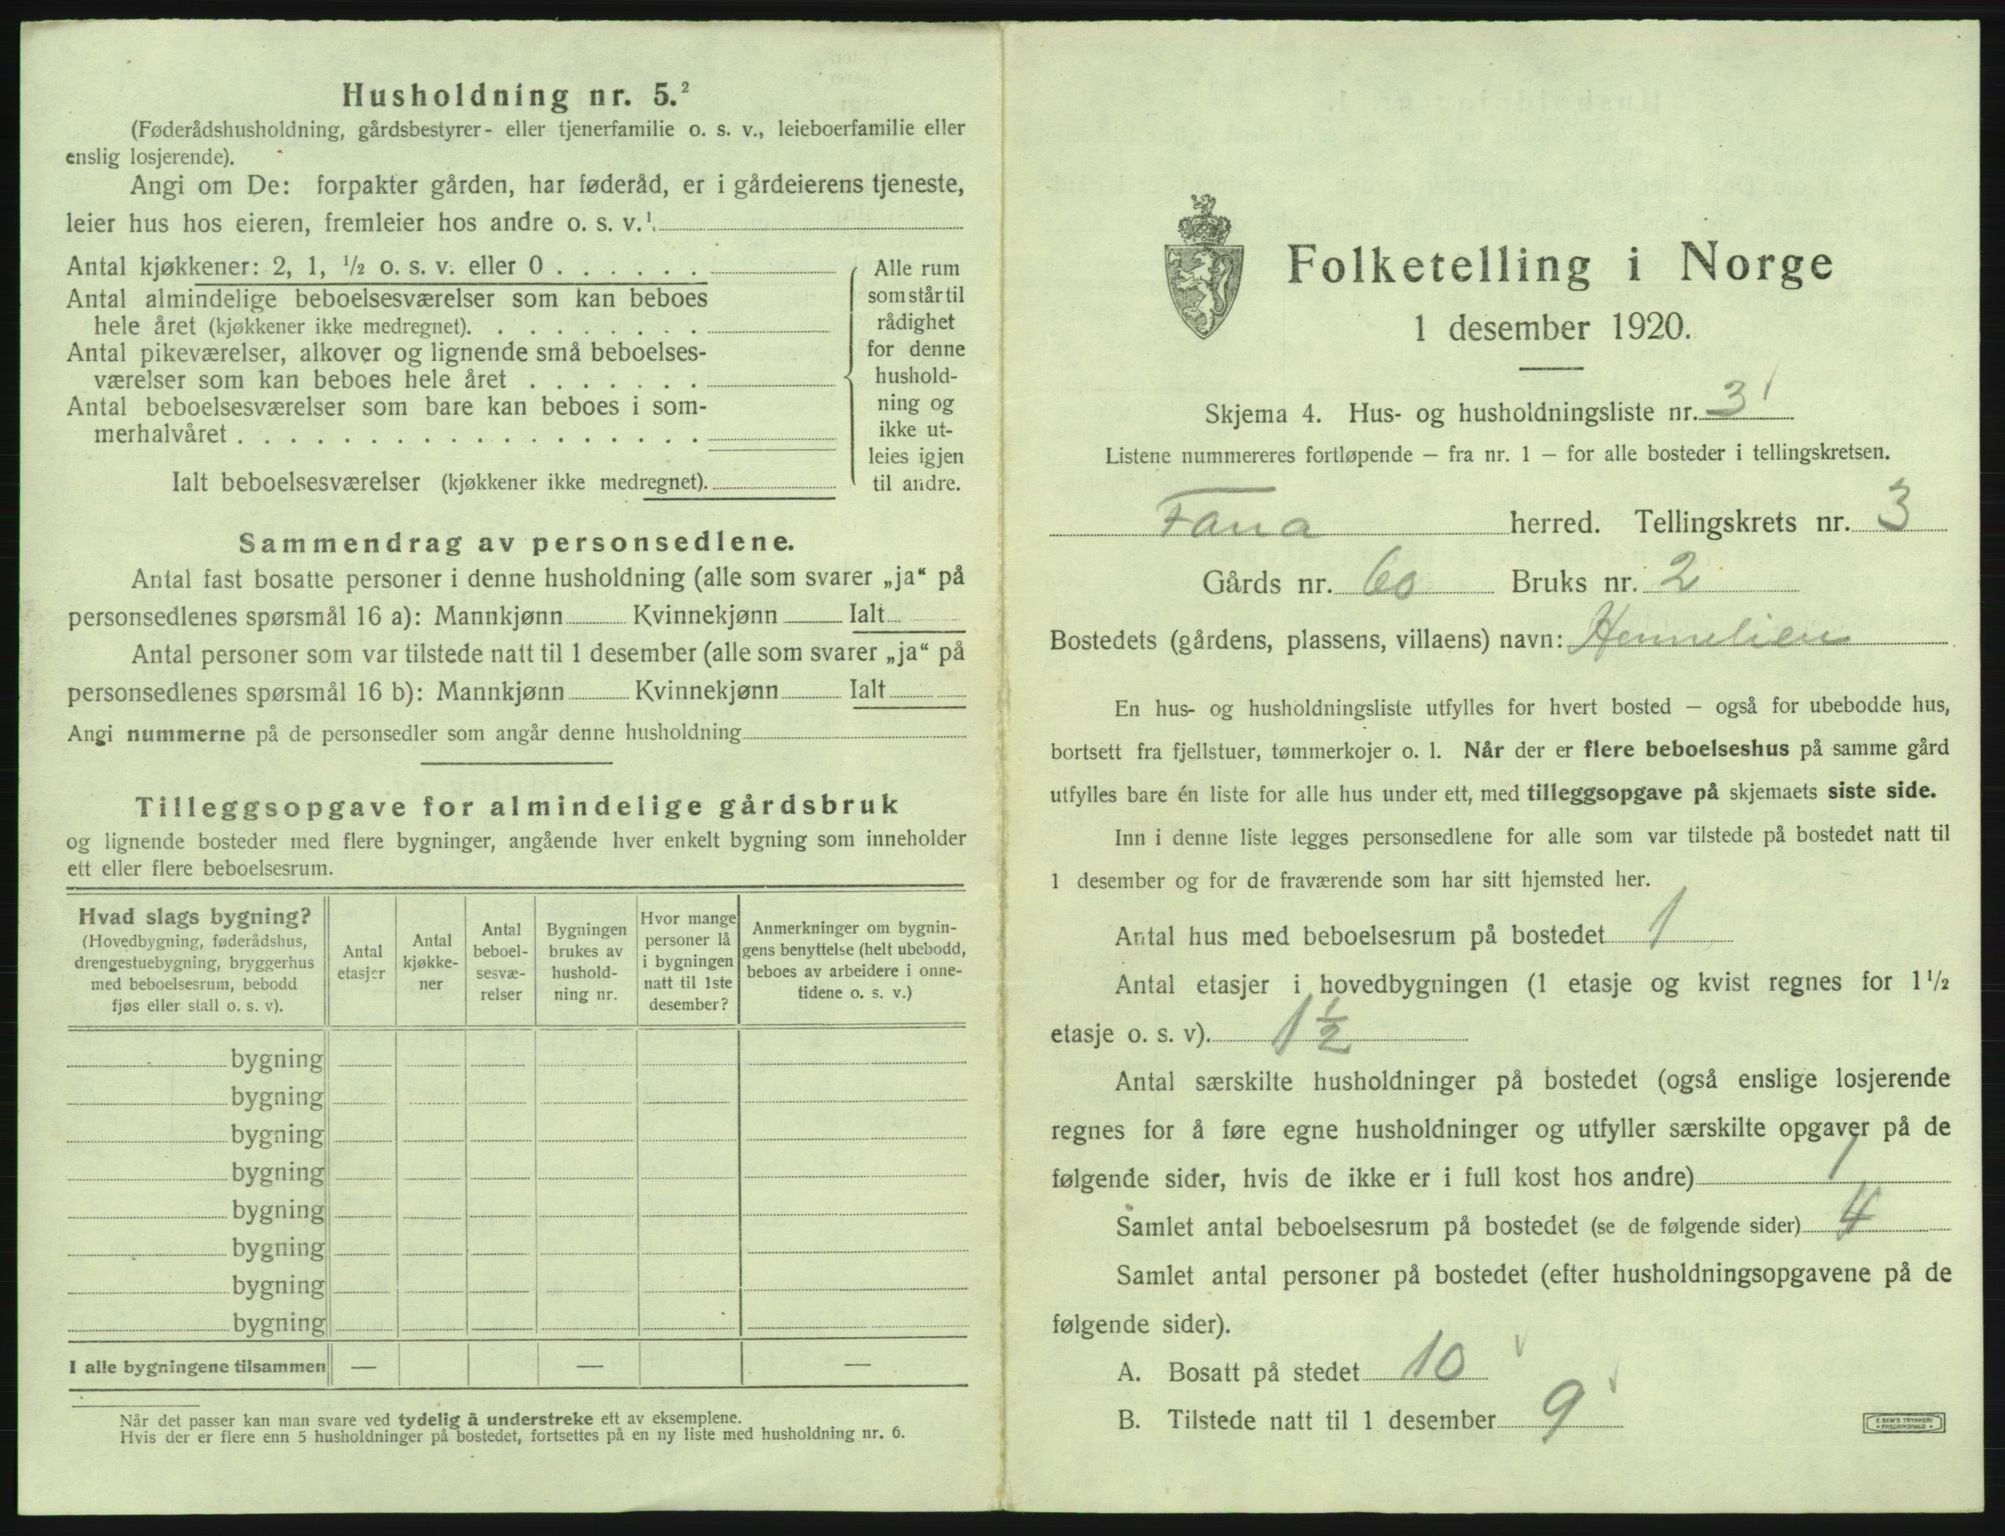 Husholdning nr. 5.²
(Føderådshusholdning, gårdsbestyrer- eller tjenerfamilie o. s. v., leieboerfamilie eller
enslig losjerende).
Angi om De: forpakter gården, har føderåd, er i gårdeierens tjeneste,
leier hus hos eieren, fremleier hos andre o. s. v.¹
Antal kjøkkener: 2, 1, ½ o. s. v. eller 0 . . . . . .
Antal almindelige beboelsesværelser som kan beboes
hele året (kjøkkener ikke medregnet). . . . . . . . .
Antal pikeværelser, alkover og lignende små beboelses-
værelser som kan beboes hele året . . . . . . .
Antal beboelsesværelser som bare kan beboes i som-
merhalvåret . . . . . . . . . . . . . . . . . .
Ialt beboelsesværelser (kjøkkener ikke medregnet).
Alle rum
som står til
rådighet
for denne
hushold-
ning og
ikke ut-
leies igjen
til andre.
Sammendrag av personsedlene.
Antal fast bosatte personer i denne husholdning (alle som svarer „ja“ på
personsedlenes spørsmål 16 a): Mannkjønn Kvinnekjønn Ialt
Antal personer som var tilstede natt til 1 desember (alle som svarer „ja“ på
personsedlenes spørsmål 16 b): Mannkjønn Kvinnekjønn Ialt
Angi nummerne på de personsedler som angår denne husholdning
Tilleggsopgave for almindelige gårdsbruk
og lignende bosteder med flere bygninger, angående hver enkelt bygning som inneholder
ett eller flere beboelsesrum.
Hvad slags bygning?
(Hovedbygning, føderådshus,
drengestuebygning, bryggerhus
med beboelsesrum, bebodd
fjøs eller stall o. s. v).
Antal
etasjer
Antal
kjøkke-
ner
Antal
beboel-
sesvæ-
relser
Bygningen
brukes av
hushold-
ning nr.
Hvor mange
personer lå
i bygningen
natt til 1ste
desember?
Anmerkninger om bygnin-
gens benyttelse (helt ubebodd,
beboes av arbeidere i onne-
tidene o. s. v.)
bygning
bygning
bygning
bygning
bygning
bygning
bygning
bygning
I alle bygningene tilsammen — — —
Når det passer kan man svare ved tydelig å understreke ett av eksemplene.
Hvis der er flere enn 5 husholdninger på bostedet, fortsettes på en ny liste med husholdning nr. 6.
Folketelling i Norge
1 desember 1920.
Skjema 4. Hus- og husholdningsliste nr. 3
Listene nummereres fortløpende – fra nr. 1 – for alle bosteder i tellingskretsen.
Fana herred. Tellingskrets nr. 3
Gårds nr. 60 Bruks nr. 2
Bostedets (gårdens, plassens, villaens) navn:
En hus- og husholdningsliste utfylles for hvert bosted – også for ubebodde hus,
bortsett fra fjellstuer, tømmerkojer o. l. Når der er flere beboelseshus på samme gård
utfylles bare én liste for alle hus under ett, med tilleggsopgave på skjemaets siste side.
Inn i denne liste legges personsedlene for alle som var tilstede på bostedet natt til
1 desember og for de fraværende som har sitt hjemsted her.
Antal hus med beboelsesrum på bostedet 1
Antal etasjer i hovedbygningen (1 etasje og kvist regnes for 1 ½
etasje o. s. v). 1 ½
Antal særskilte husholdninger på bostedet (også enslige losjerende
regnes for å føre egne husholdninger og utfyller særskilte opgaver på de
følgende sider, hvis de ikke er i full kost hos andre) 1
Samlet antal beboelsesrum på bostedet (se de følgende sider) 4
Samlet antal personer på bostedet (efter husholdningsopgavene på de
følgende sider).
A. Bosatt på stedet 10
B. Tilstede natt til 1 desember 9
E. SEM'S TRYKKERI
FREDRIKSHALD